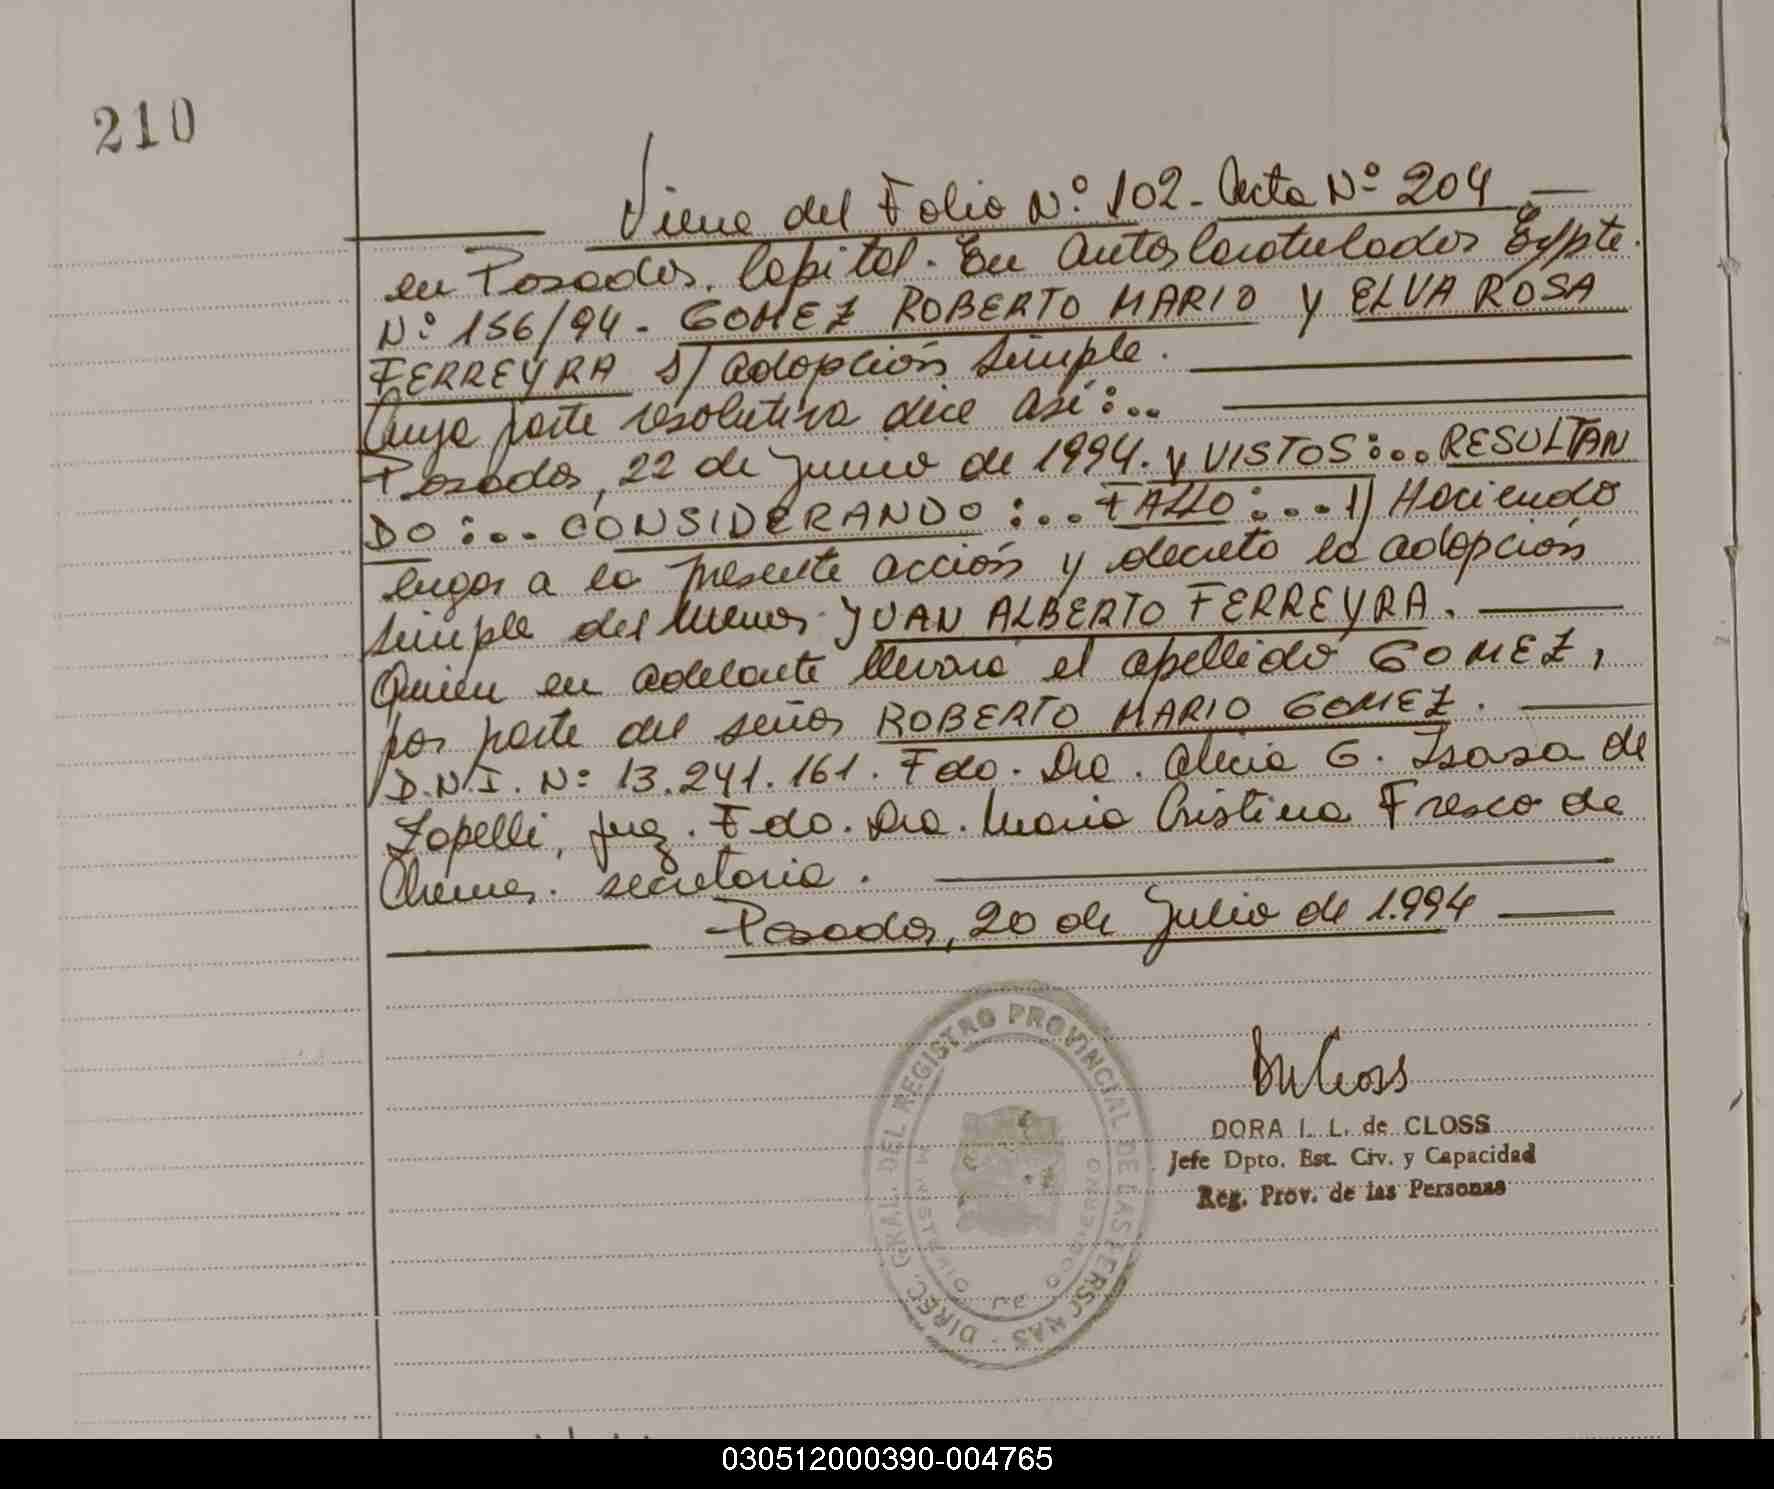 210
Viene del Folio Nº 102 - Acta Nº 204
en Posadas, Capital. En Autos Caratulados Expte.
Nº 156/94 - GOMEZ ROBERTO MARIO y ELVA ROSA
FERREYRA s/ adopción simple.
Cuya parte resolutiva dice así:..
Posadas, 22 de Junio de 1994. y VISTOS:... RESULTAN
DO:... CONSIDERANDO:... FALLO:... 1) Haciendo
lugar a la presente acción y decreto la adopción
simple del menor JUAN ALBERTO FERREYRA.
Quien en adelante llevará el apellido GOMEZ,
por parte del señor ROBERTO MARIO GOMEZ.
D.N.I. Nº 13.241.161. Fdo. Dra. Alicia G. Isasa de
Zapelli, juez. Fdo. Dra. María Cristina Fresco de
secretaria.
Posadas, 20 de Julio de 1.994
DIREC. GRAL. DEL REGISTRO PROVINCIAL DE LAS PERSONAS
MINISTERIO DE GOBIERNO
DORA I. L. de CLOSS
Jefe Dpto. Est. Civ. y Capacidad
Reg. Prov. de las Personas
030512000390-004765